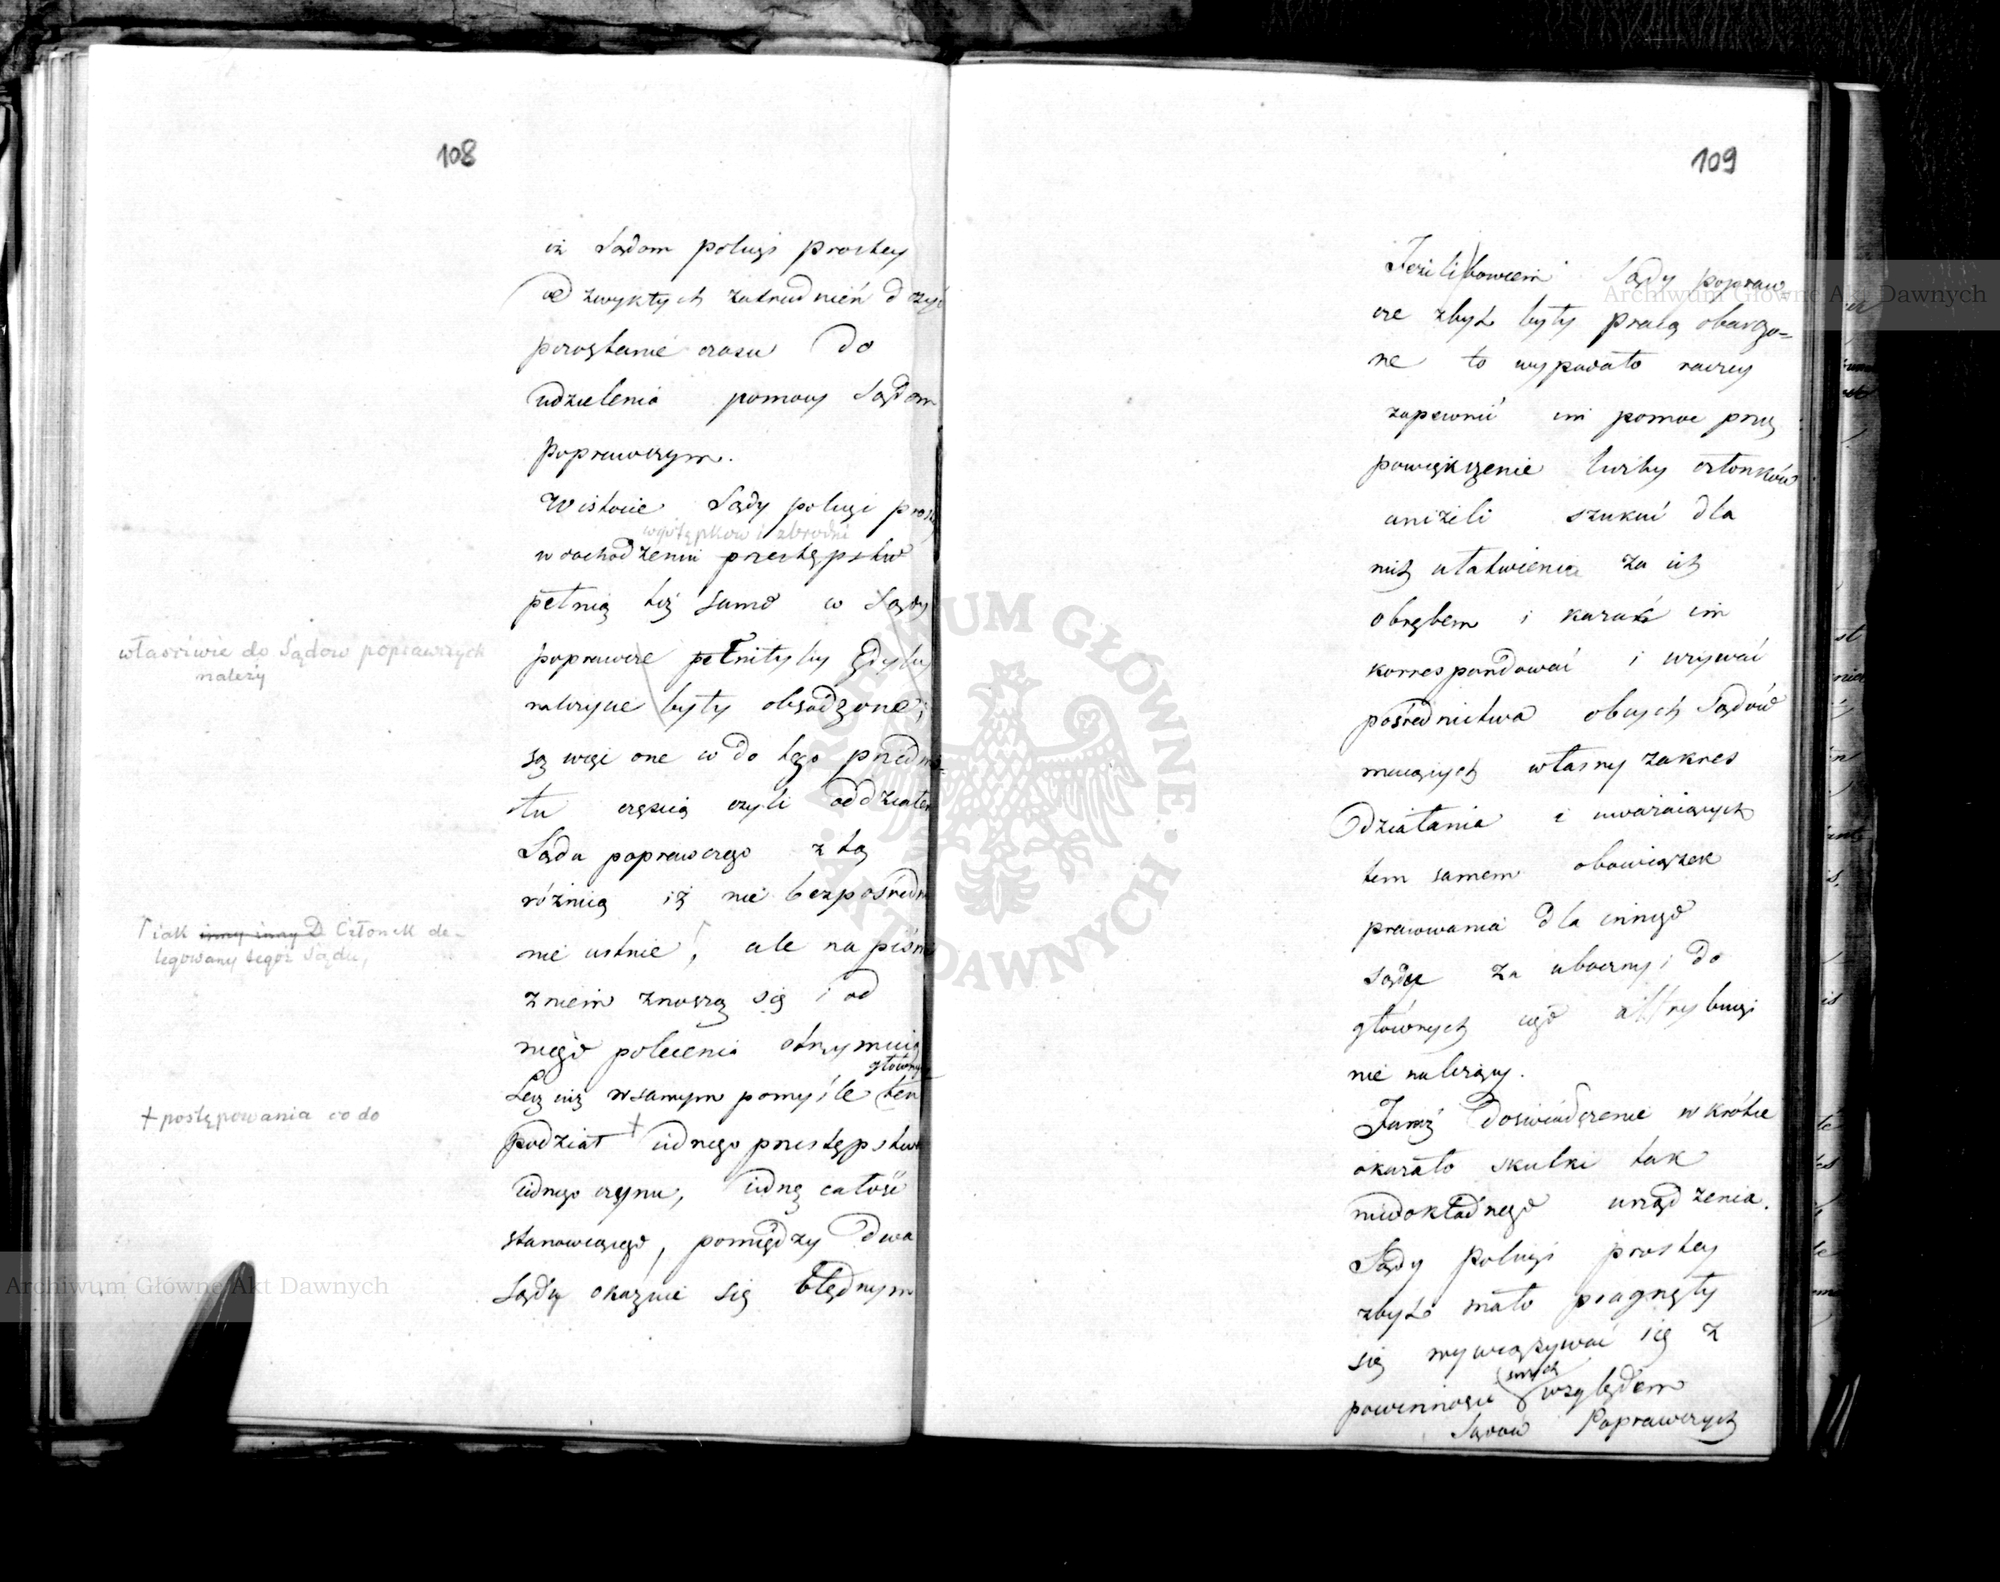 108
iż Sądom policyi prostey
od zwykłych zatrudnień dosyć
pozostanie czasu do
udzielenia pomocy Sądom
poprawczym.
W istocie Sądy policyi prost
występków i zbrodni
w dochodzeniu przestępstw
pełnią toż samo co Sądy
poprawcze pełniłyby gdyby
należycie były obsadzone;
są więc one co do tego przedmio-
tu częścią czyli oddziałem
Sądu poprawczego z tą
różnicą iż nie bezpośredn
nie ustnie, ale na piśmie
z niem znoszą się i od
niego polecenia otrzymuią
główny
Lecz iuż w samym pomyśle ten
podział + iednego przestępstwa
iednego czynu, iedną całość
stanowiącego, pomiędzy dwa
Sądy okazuie się błędnym
właściwie do Sądow poprawczych
należy
Γ iak inny inny D Członek de-
legowany tegoż Sądu,
+ postępowania co do
109
Jeżeli bowiem Sądy popraw
cze zbyt były pracą obarczo=
ne to wypadało raczey
zapewnić im pomoc przez
powiększenie liczby członków
aniżeli szukać dla
nich ułatwienia za ich
obrębem i kazać im
korrespondować i wzywać
pośrednictwa obcych Sądów
maiących własny zakres
działania i uważaiących
tem samem obowiązek
pracowania dla innego
Sądu za uboczny i do
głównych iego attrybucyi
nie należący.
Jakoż doświadczenie wkrótce
okazało skutki tak
niedokładnego urządzenia.
Sądy Policyi prostey
zbyt mało pragnęły
się wywiązywać się z
powinności swych względem
Sądów Poprawczych
Archiwum Główne Akt Dawnych
Archiwum Główne Akt Dawnych
ARCHIWUM GŁÓWNE • AKT DAWNYCH •